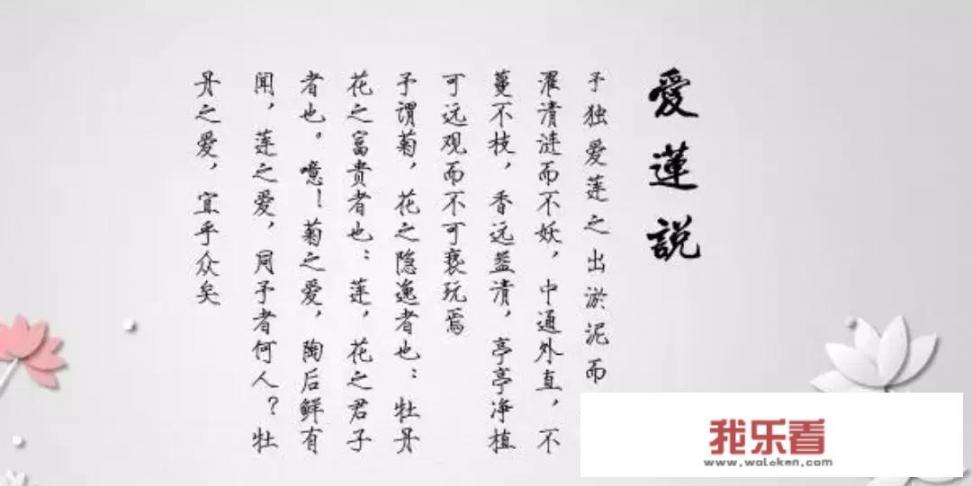 愛蓮說
予独爱莲之出淤泥而
濯清涟而不妖，中通外直，不
蔓不枝，香远益清，亭亭净植
可远观而不可亵玩焉
予谓菊，花之隐逸者也：牡丹
花之富貴者也：莲，花之君子
者也。噫！菊之爱，陶后鲜有
闻，莲之爱，同予者何人？牡
丹之爱，宜乎众矣
我乐看
www.woleken.com